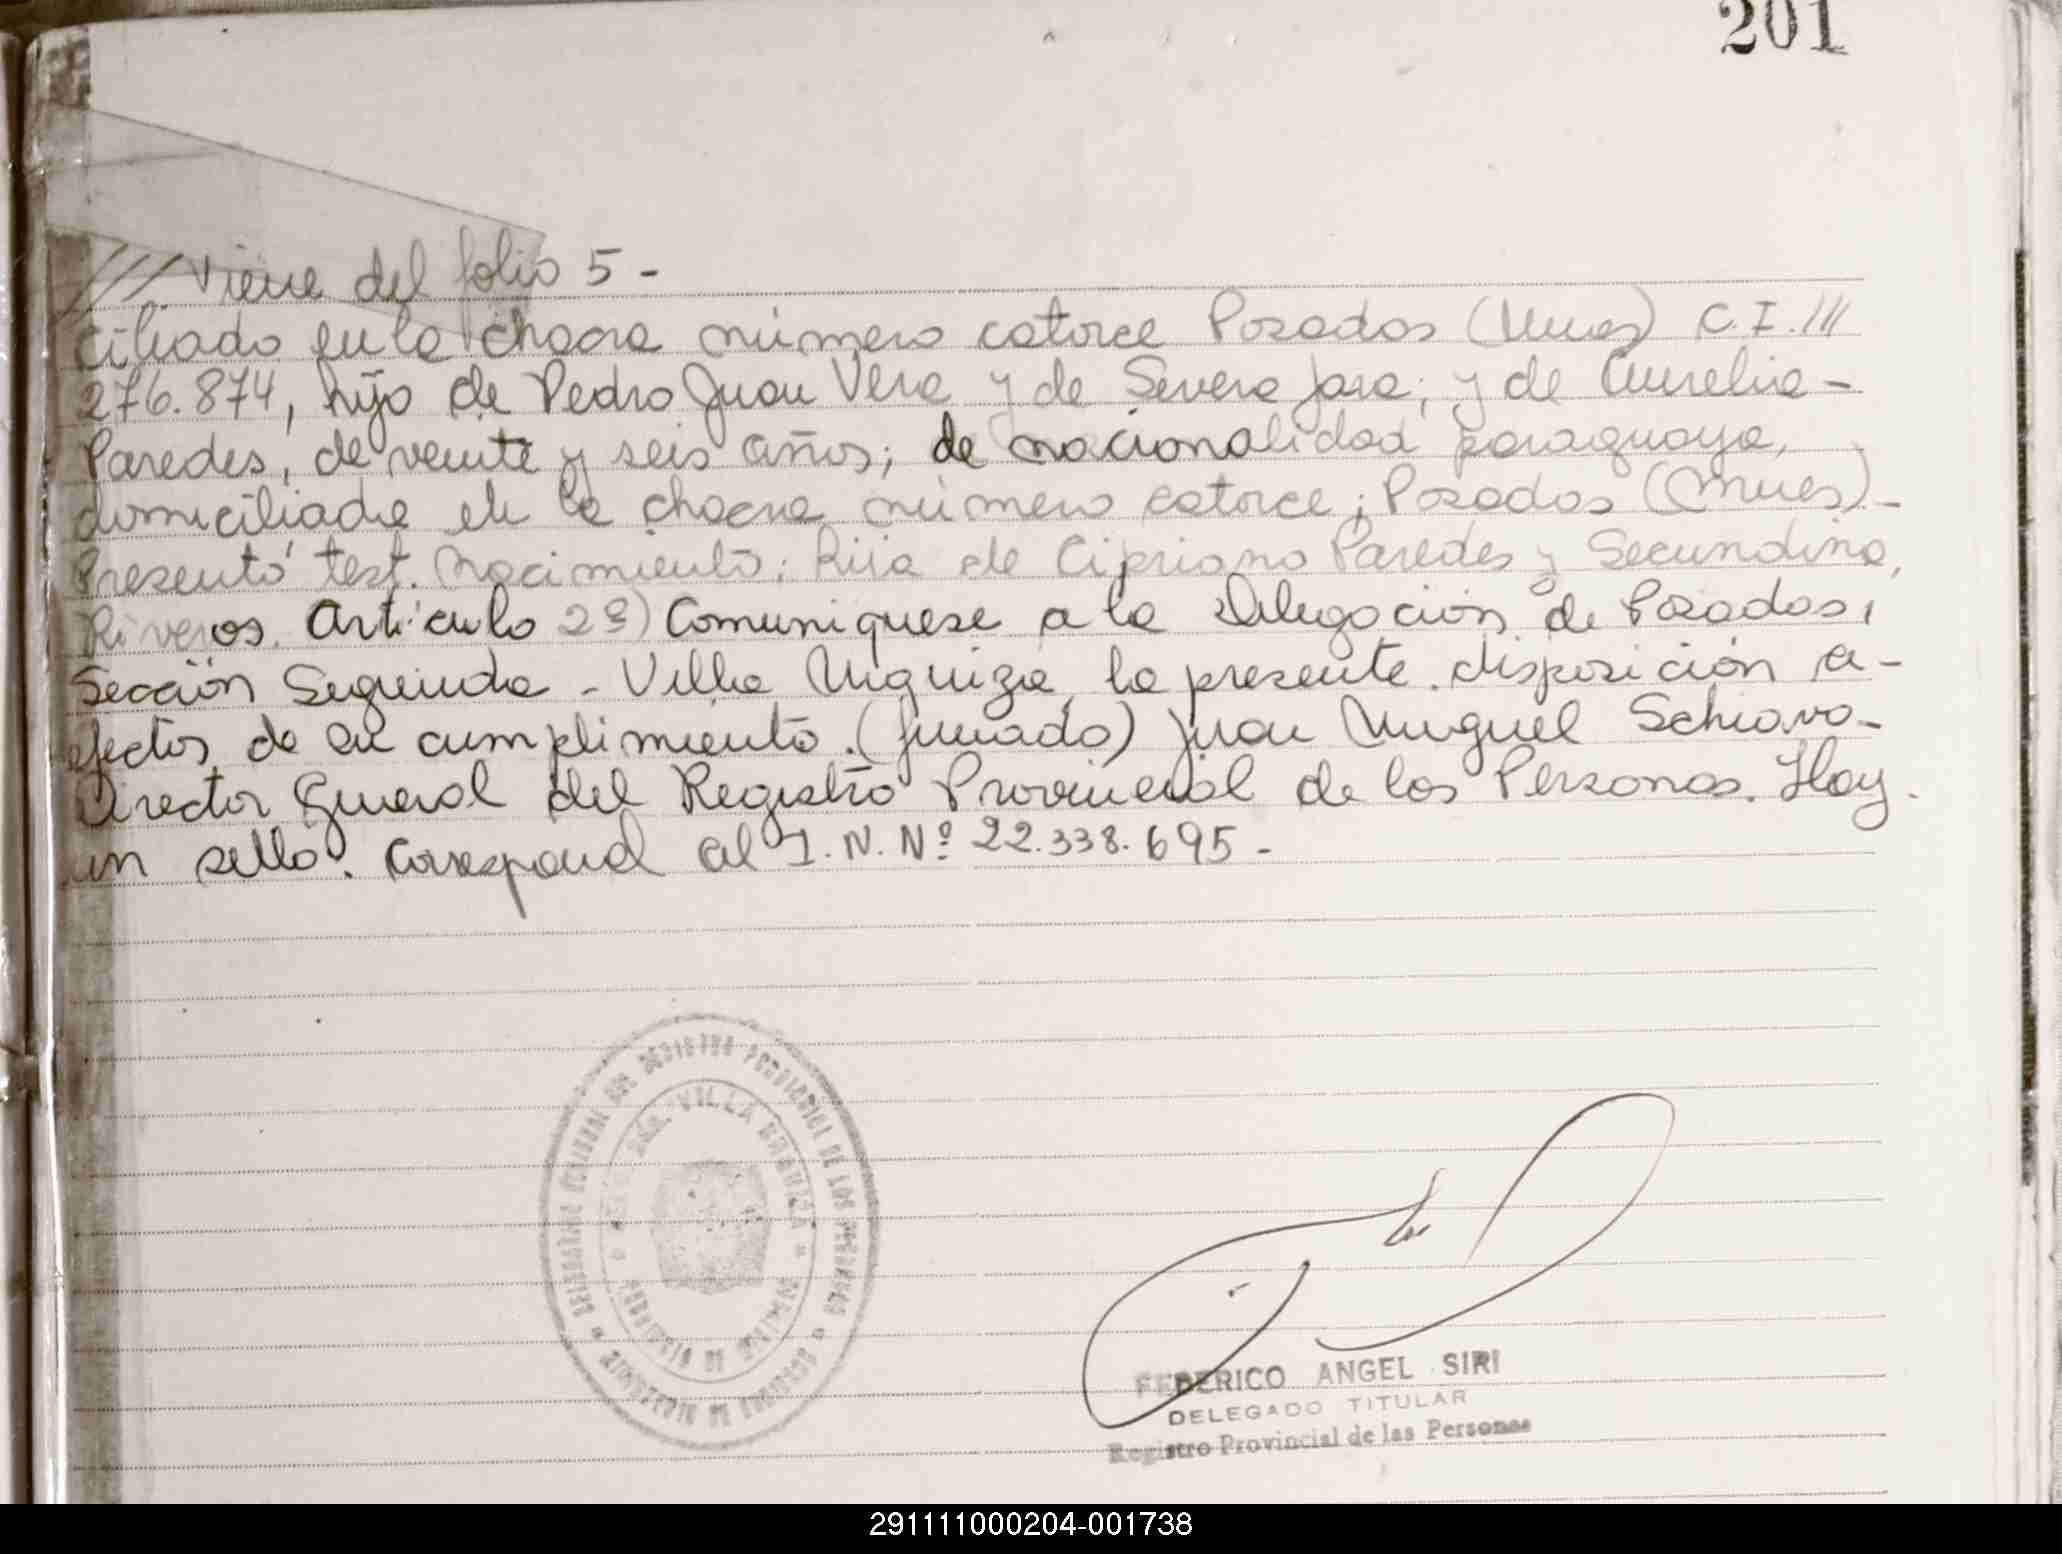 201
/// Viene del folio 5 -
ciliado en la chacra número catorce Posadas (Mnes) C.I. ///
276.874, hijo de Pedro Juan Vera y de Severa Jara; y de Aurelia -
Paredes, de veinte y seis años; de nacionalidad paraguaya,
domiciliada en la chacra número catorce; Posadas (Mnes) -
Presentó test. nacimiento: hija de Cipriano Paredes y Secundina,
Riveros. Artículo 2º) Comuniquese a la Delegación de Posadas,
Sección Segunda - Villa Urquiza, la presente disposición a -
efectos de su cumplimiento. (firmado) Juan Miguel Schiavo -
Director General del Registro Provincial de los Personas. Hay.
un sello. Correspond al I. N. Nº 22.338.695 -
REGISTRO PROVINCIAL DE LOS PERSONAS
VILLA URQUIZA
PROVINCIA DE MISIONES
MINISTERIO DE GOBIERNO
FEDERICO ANGEL SIRI
DELEGADO TITULAR
Registro Provincial de las Personas
291111000204-001738